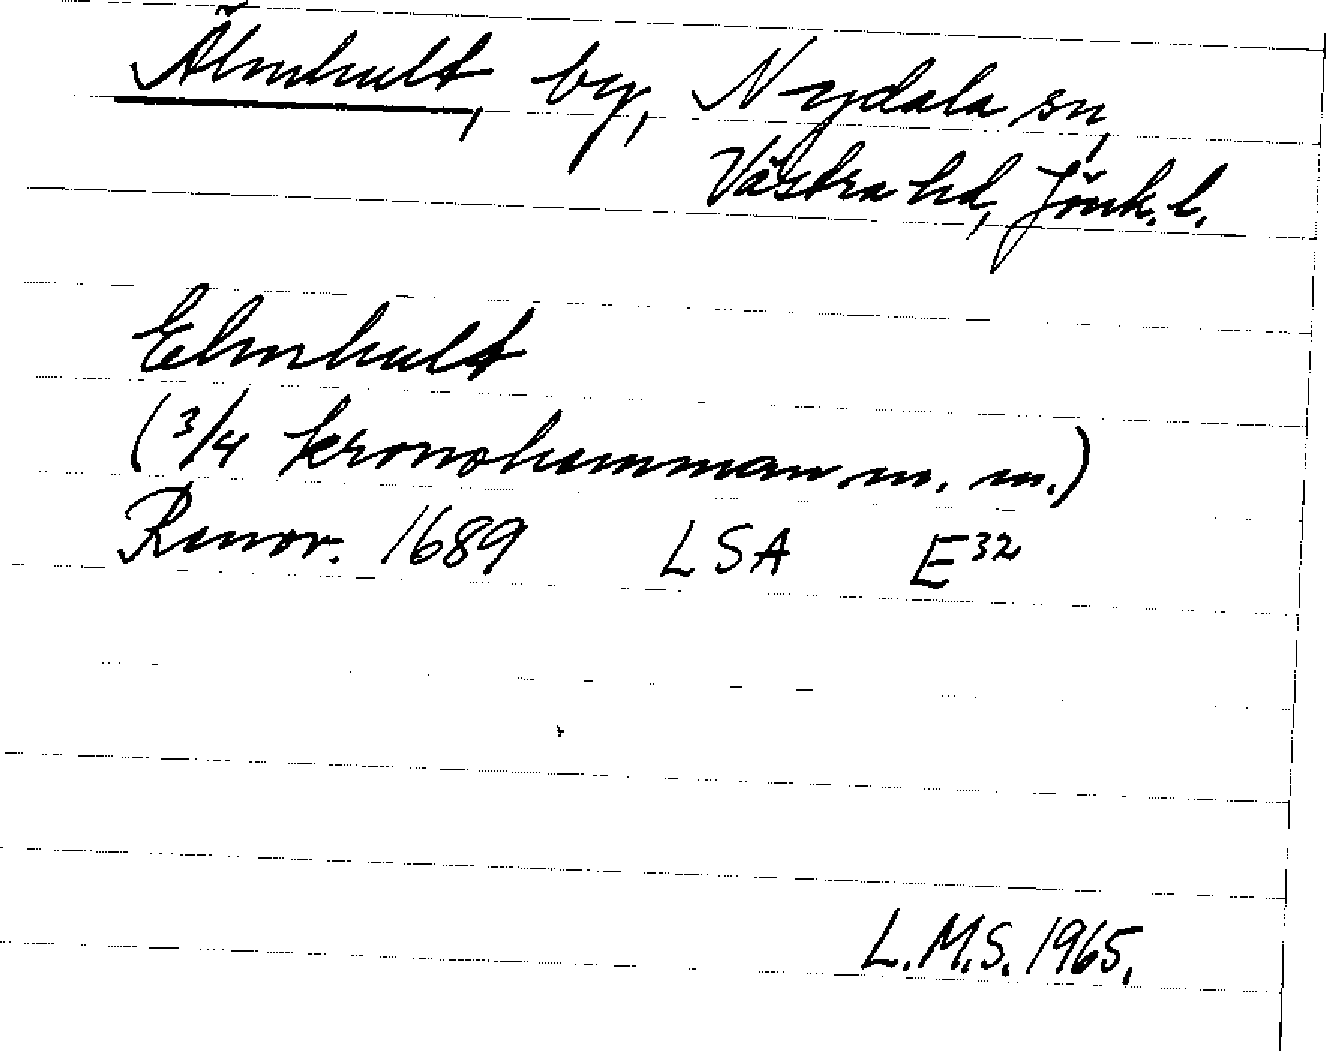 Älmhult, by, Nydala sn,
Västra hd, Jönk. l.
Elmhult
(3/4 kronohemman m. m.)
Renov. 1689 LSA E32
L.M.S. 1965.